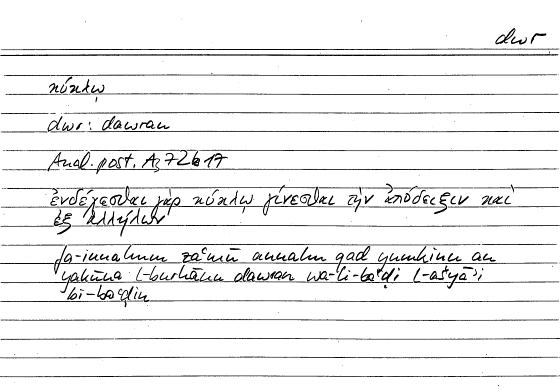 dwr
κύκλῳ
dwr: dawran
Anal. post. A3 72b17
ἐνδέχεσθαι γὰρ κύκλῳ γίνεσθαι τὴν ἀπόδειξιν καὶ
ἐξ ἀλλήλων
fa-innahum zaʿmū annahu qad yumkinu an
yakūna l-burhānu dawran wa-li-baʿḍi l-ašyāʾi
bi-baʿḍin